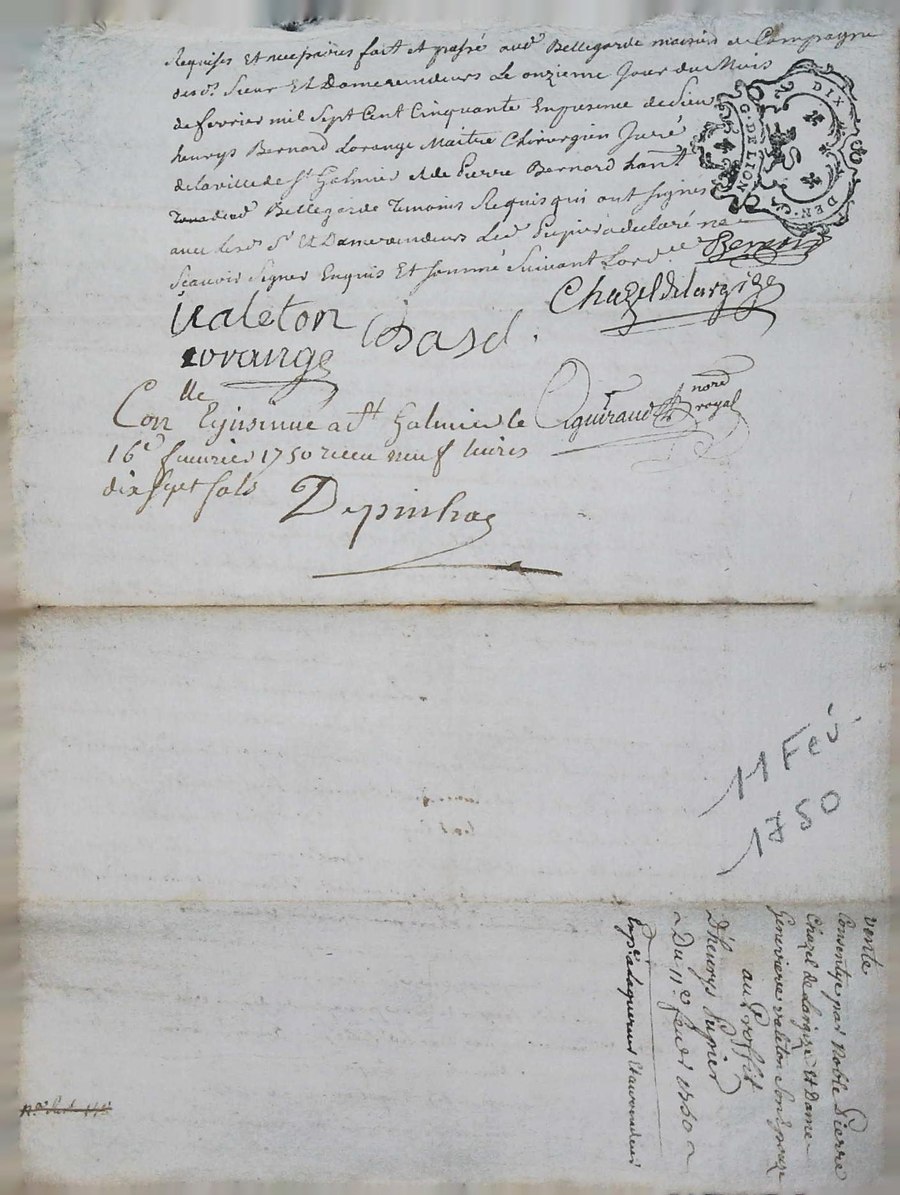 Requises Et necessaires fait et passé aud Bellegarde maison de Compagne
desd. Sieur Et Dame vendeurs Le onzieme Jour du Mois
de fevrier mil Sept Cent Cinquante En presence de Sieur
henrys Bernard Lorange Maitre Chirurgien Juré
de la ville de St Galmier et de Pierre Bernard habt
dud Bellegarde temoins Requis qui ont Signés
avec lesd. Sr Et Dame vendeurs Led Pupier a declaré ne
Scavoir Signer Enquis Et sommé Suivant Lord ce
Bernard
Valeton Basd. Chazel de largize
Lorange
Con lle Et insinué a St Galmier le
16e fevrier 1750 recu neuf livres
dix sept sols
Depinhac
aguiraud nore royal
G. DE LION
DIX DEN.
11 Fév.
1750
vente
Consentye par Noble Pierre
Chazel de Largize Et Dame
Genevieve valeton Son Epouze
au Proffit
D'heurys Pupier
Du 11e fevrier 1750
Exp.